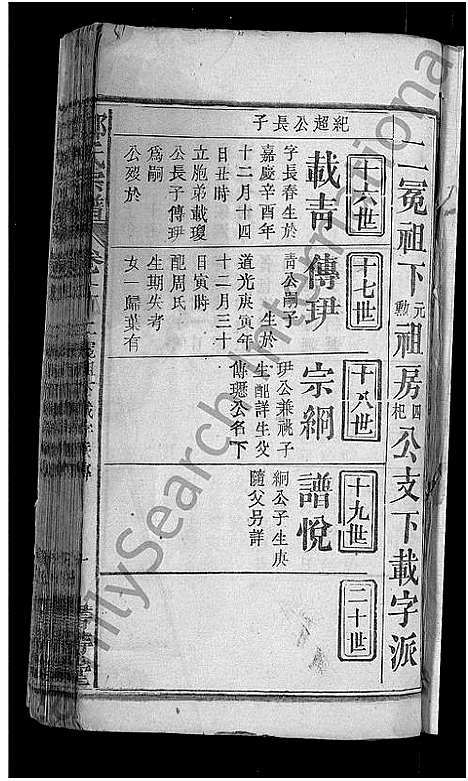 二冕祖下元勳祖房四杞公支下載字派
十六世
紀超公長子
載青
字長春生於
嘉慶辛酉年
十二月十四
日丑時
立胞弟載瓊
公長子傳玾
爲嗣
公歿於
十七世
傳玾
青公嗣子
生於
道光庚寅年
十二月三十
日寅時
配周氏
生期失考
女一歸葉有
十八世
宗綱
玾公兼祧子
生配詳生父
傳璁公名下
十九世
譜悅
綱公子生庚
隨父另詳
二十世
氏宗譜
卷